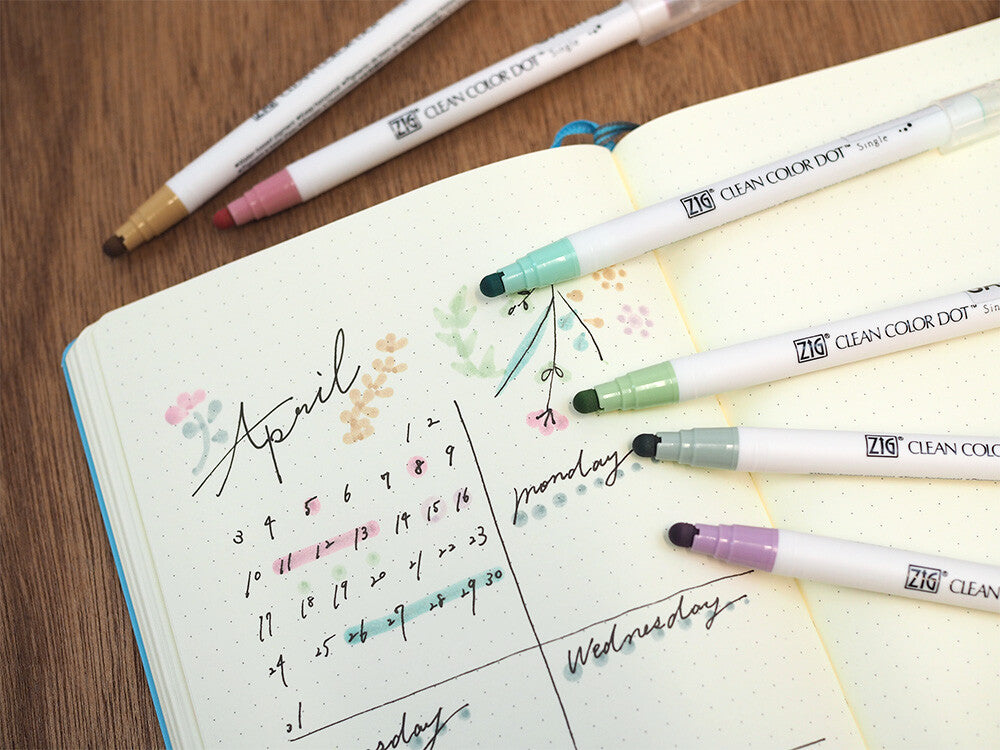 ZIG® CLEAN COLOR DOT™ Single
ZIG® CLEAN COLOR DOT™ Single
ZIG® CLEAN COLOR DOT™ Sin
ZIG® CLEAN COLO
ZIG® CLEAN
April
1 2
3 4 5 6 7 8 9
10 11 12 13 14 15 16
17 18 19 20 21 22 23
24 25 26 27 28 29 30
monday
Wednesday
sday